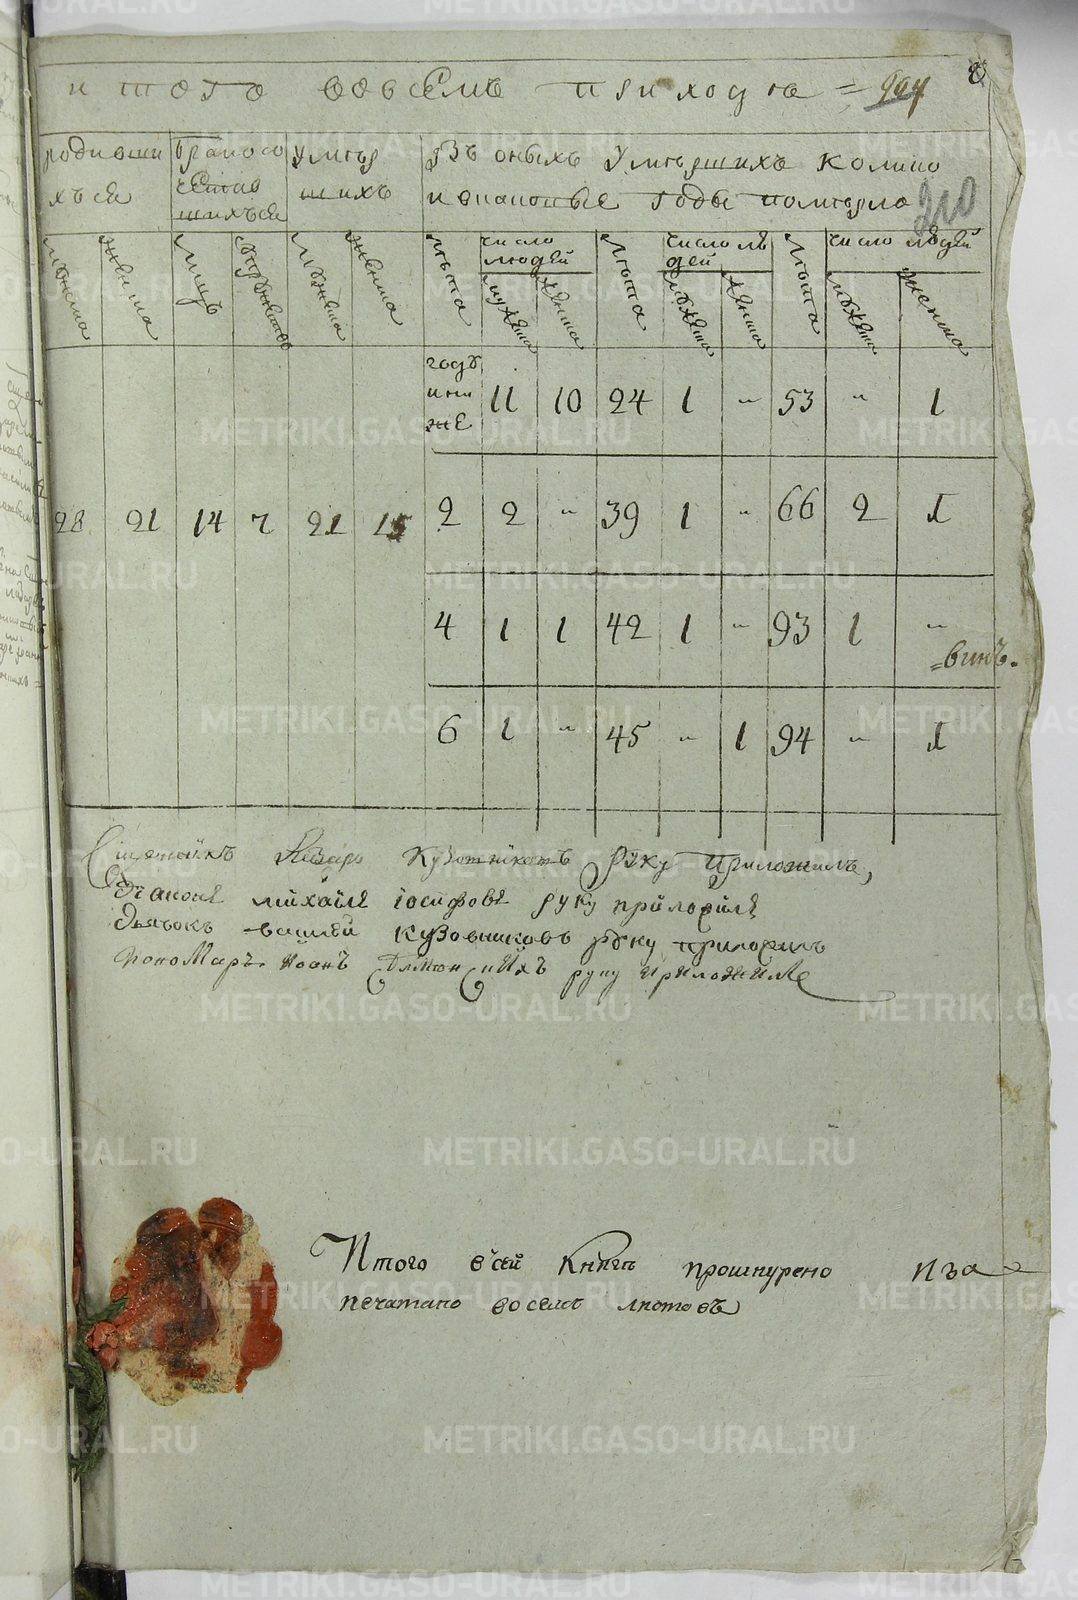 итого во всемъ приходѣ = 994
8
210
родивши
хъся
бракосо
четав
шихъся
умер
шихъ
Въ оныхъ умершихъ колико
и в каковые годы померло
мужеска
женска
лицъ
женска
лѣта
число
людей
мужеска
женска
лѣта
число лю
дей
мужеска
женска
лѣта
число людей
мужеска
женска
годъ
и ни
же
11 10 24 1 " 53 " 1
28 21 14 7 21 15 2 2 " 39 1 " 66 2 1
4 1 1 42 1 " 93 1 "
6 1 " 45 " 1 94 " 1
Сщенникъ Лазарь Кузовниковъ руку приложилъ,
Диаконъ михайла иосифовъ руку приложилъ
Дьячокъ василей кузовниковъ руку приложилъ
Пономарь иоанъ руку приложилъ
Итого всей книгѣ прошнурено и за
печатано восемь листовъ
METRIKI.GASO-URAL.RU